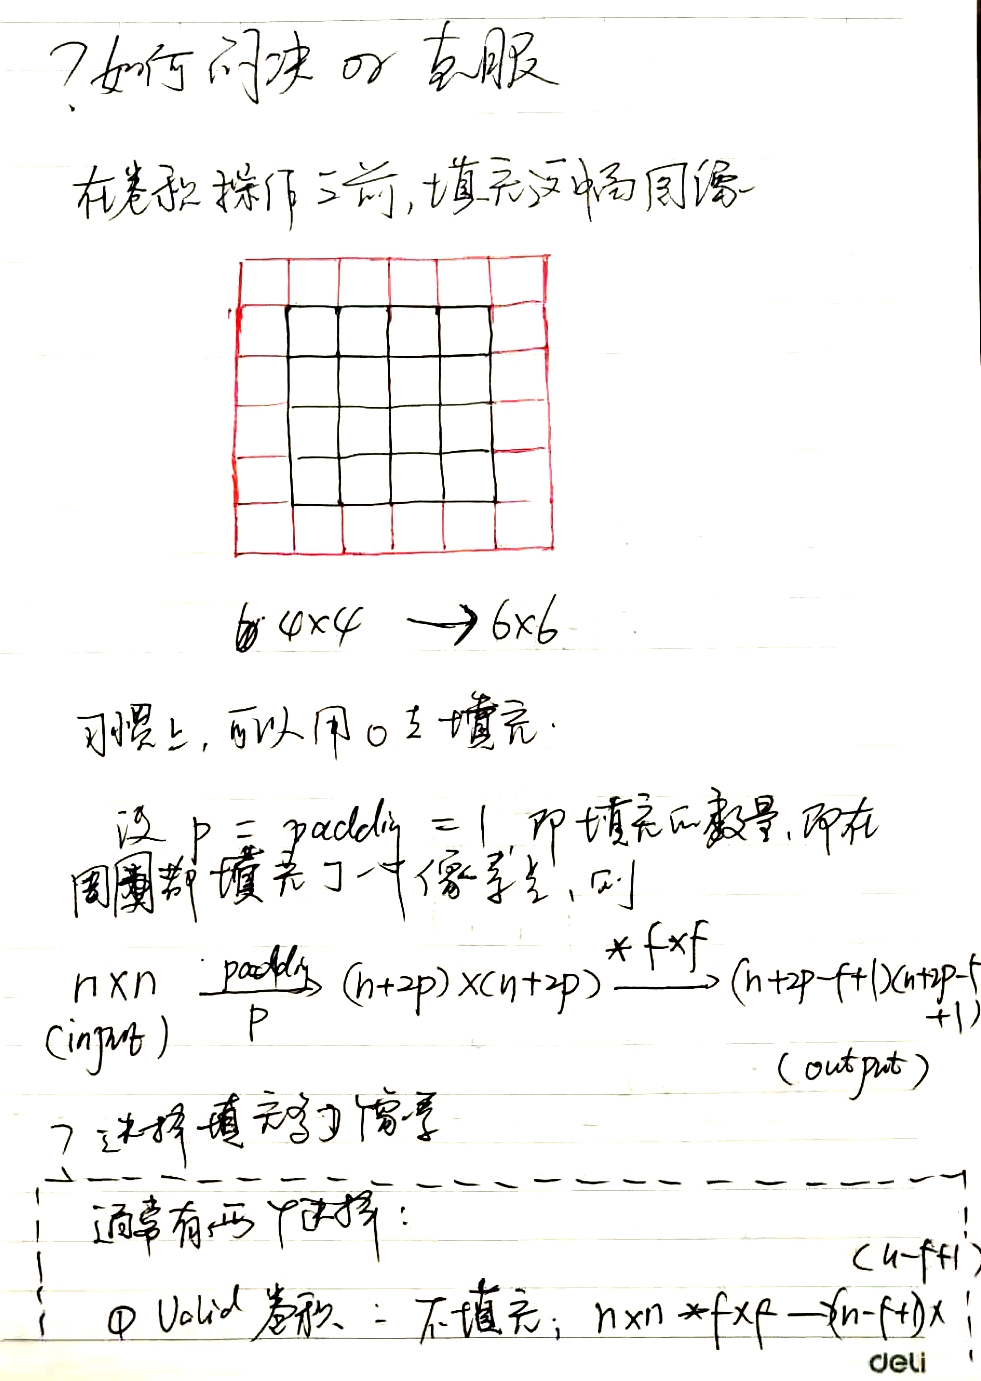 ?如何解决 or 克服
在卷积操作之前,填充这幅图像
4×4 → 6×6
习惯上,可以用0去填充.
设 p = padding = 1, 即填充的数量,即在
周围都填充了一个像素点,则
n×n padding p (n+2p)×(n+2p) * f×f (n+2p-f+1)(n+2p-f
+1)
(input)
(output)
? 选择填充多少像素
通常有两个选择:
(n-f+1)
① Valid 卷积: 不填充; n×n * f×f → (n-f+1)×
deli